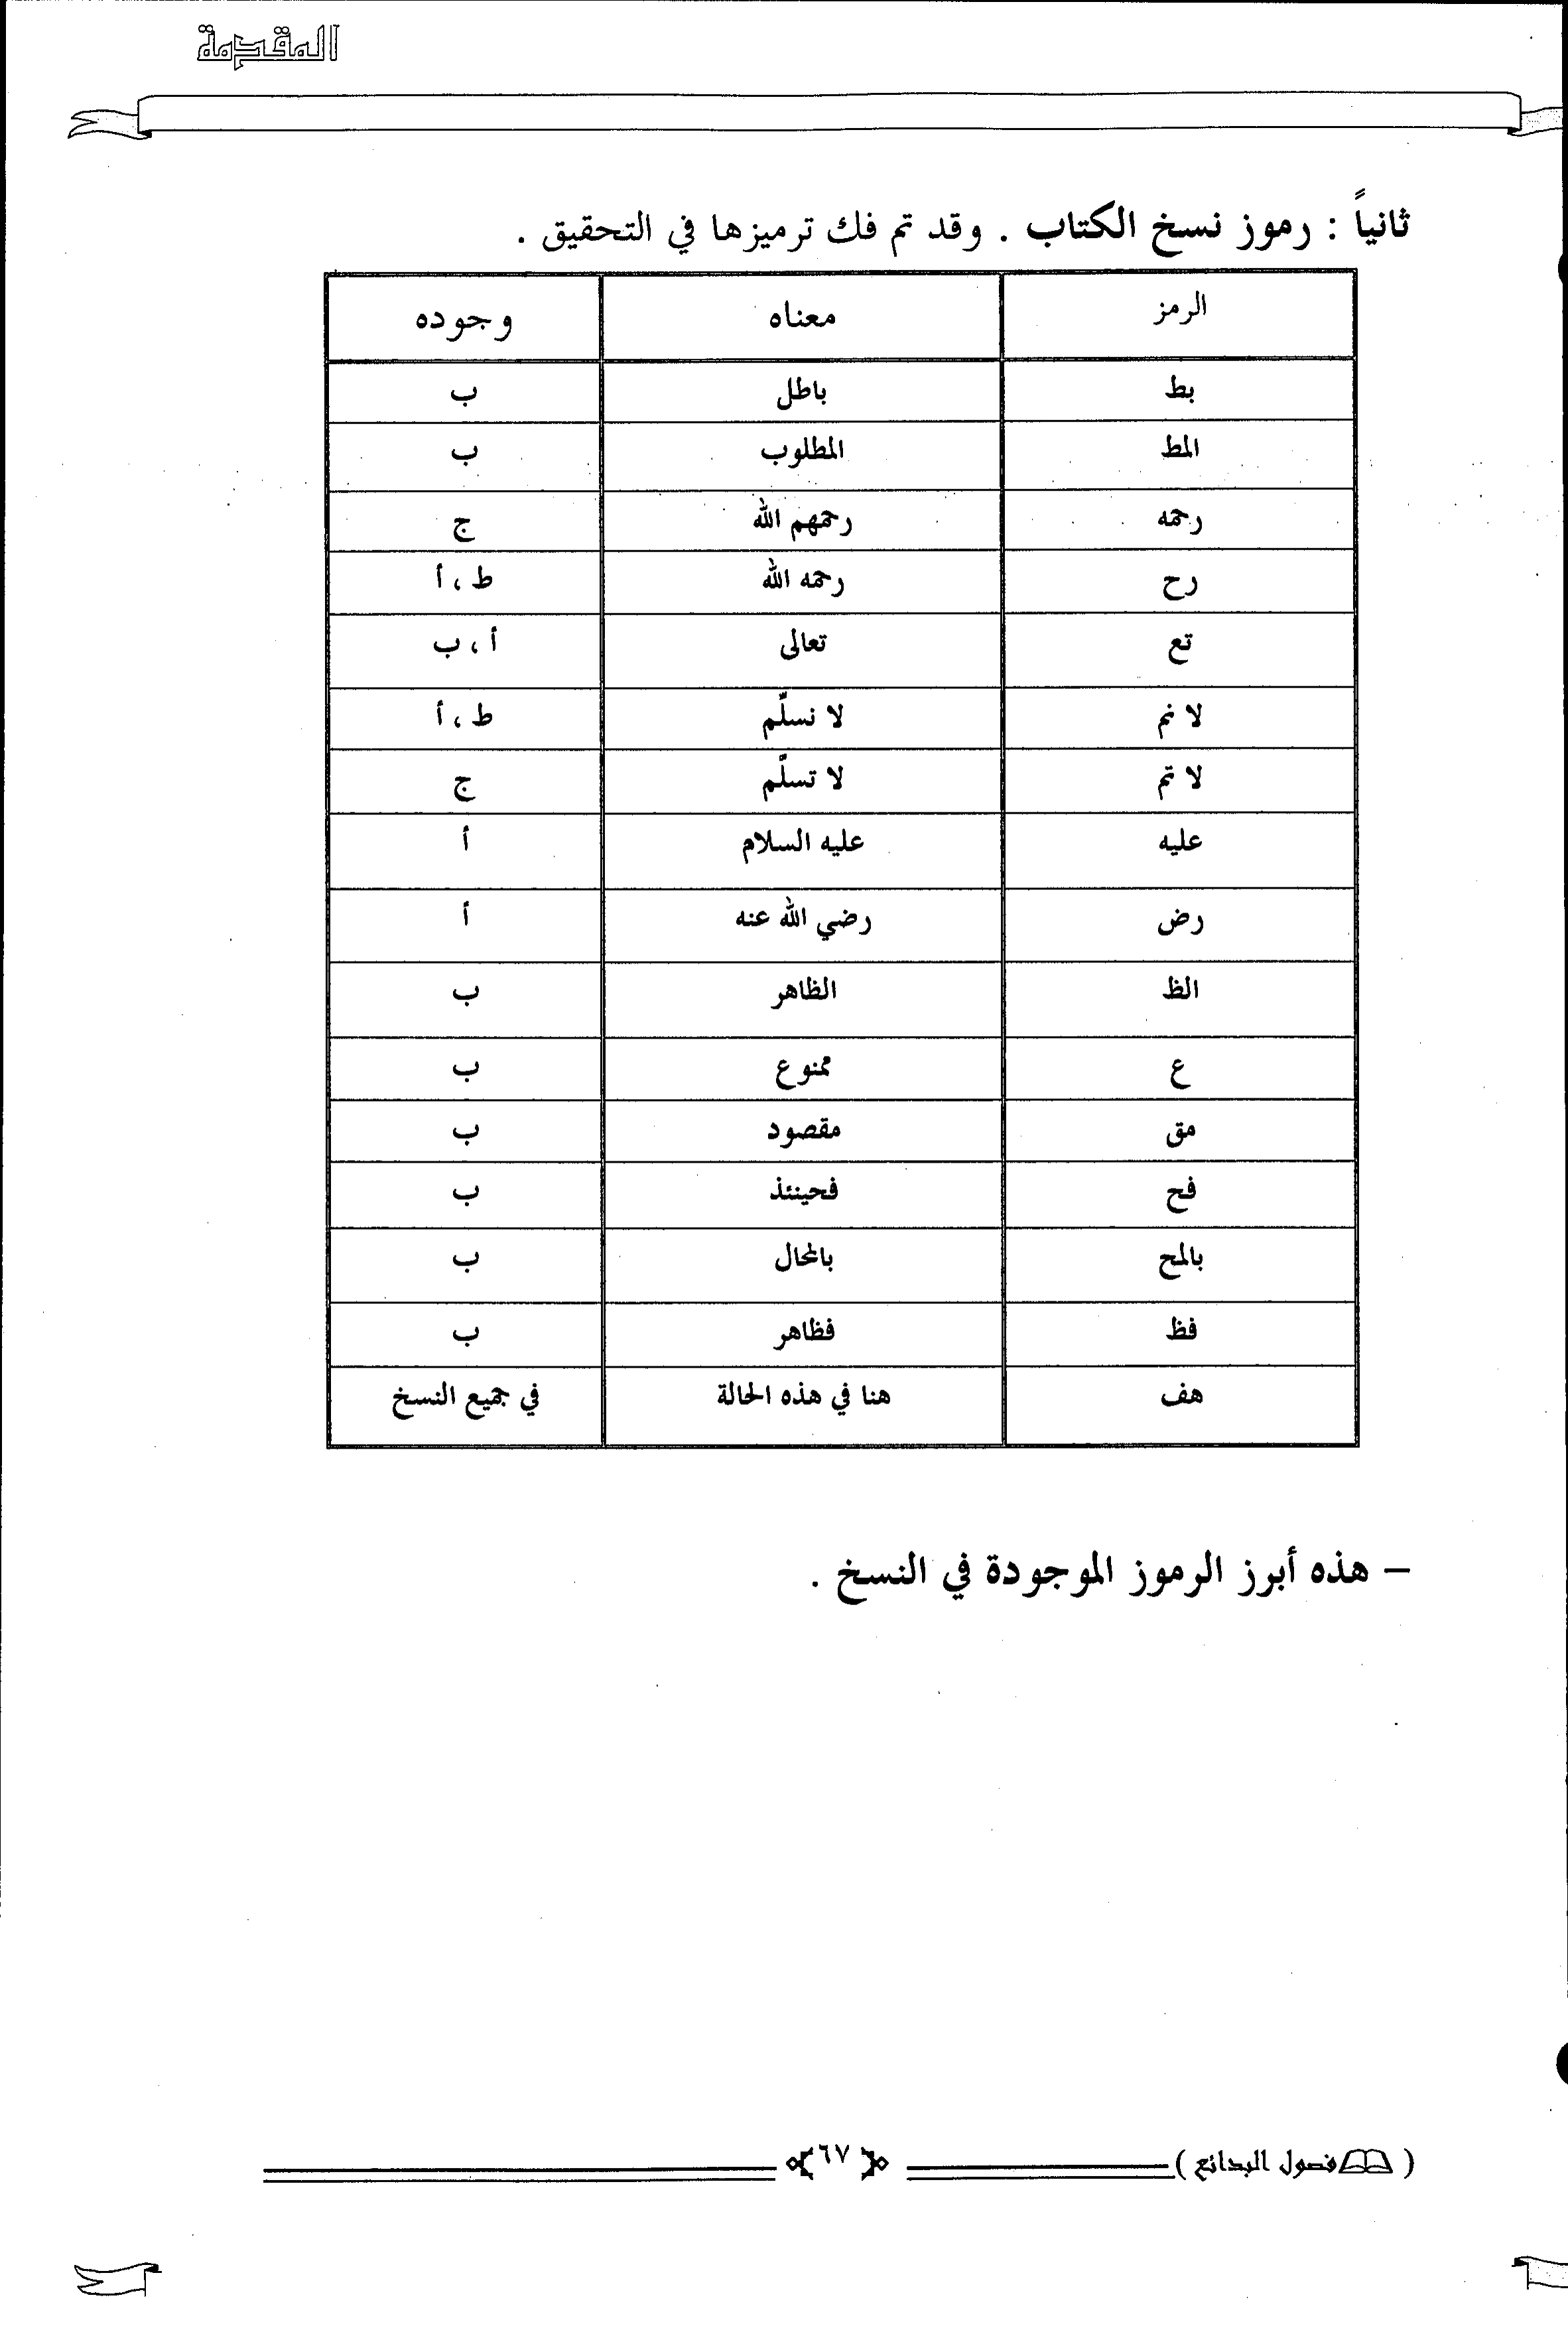 المقدمة
ثانياً : رموز نسخ الكتاب . وقد تم فك ترميزها في التحقيق .
الرمز معناه وجوده
بط باطل ب
المط المطلوب ب
رحمه رحمهم الله ج
رح رحمه الله ط ، أ
تع تعالى أ ، ب
لا نم لا نسلّم ط ، أ
لا تم لا تسلّم ج
عليه عليه السلام أ
رض رضي الله عنه أ
الظ الظاهر ب
ع ممنوع ب
مق مقصود ب
فح فحينئذ ب
بالمح بالمحال ب
فظ فظاهر ب
هف هنا في هذه الحالة في جميع النسخ
– هذه أبرز الرموز الموجودة في النسخ .
( فصول البدائع ) ٦٧